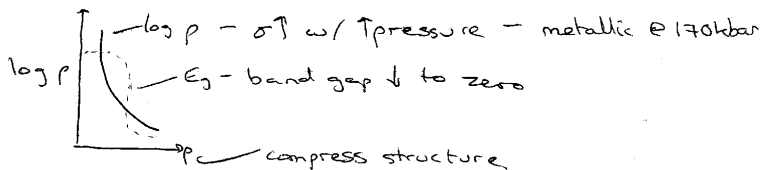 log ρ – σ↑ w/ ↑pressure – metallic @ 170kbar
log ρ
Eg – band gap ↓ to zero
P
compress structure